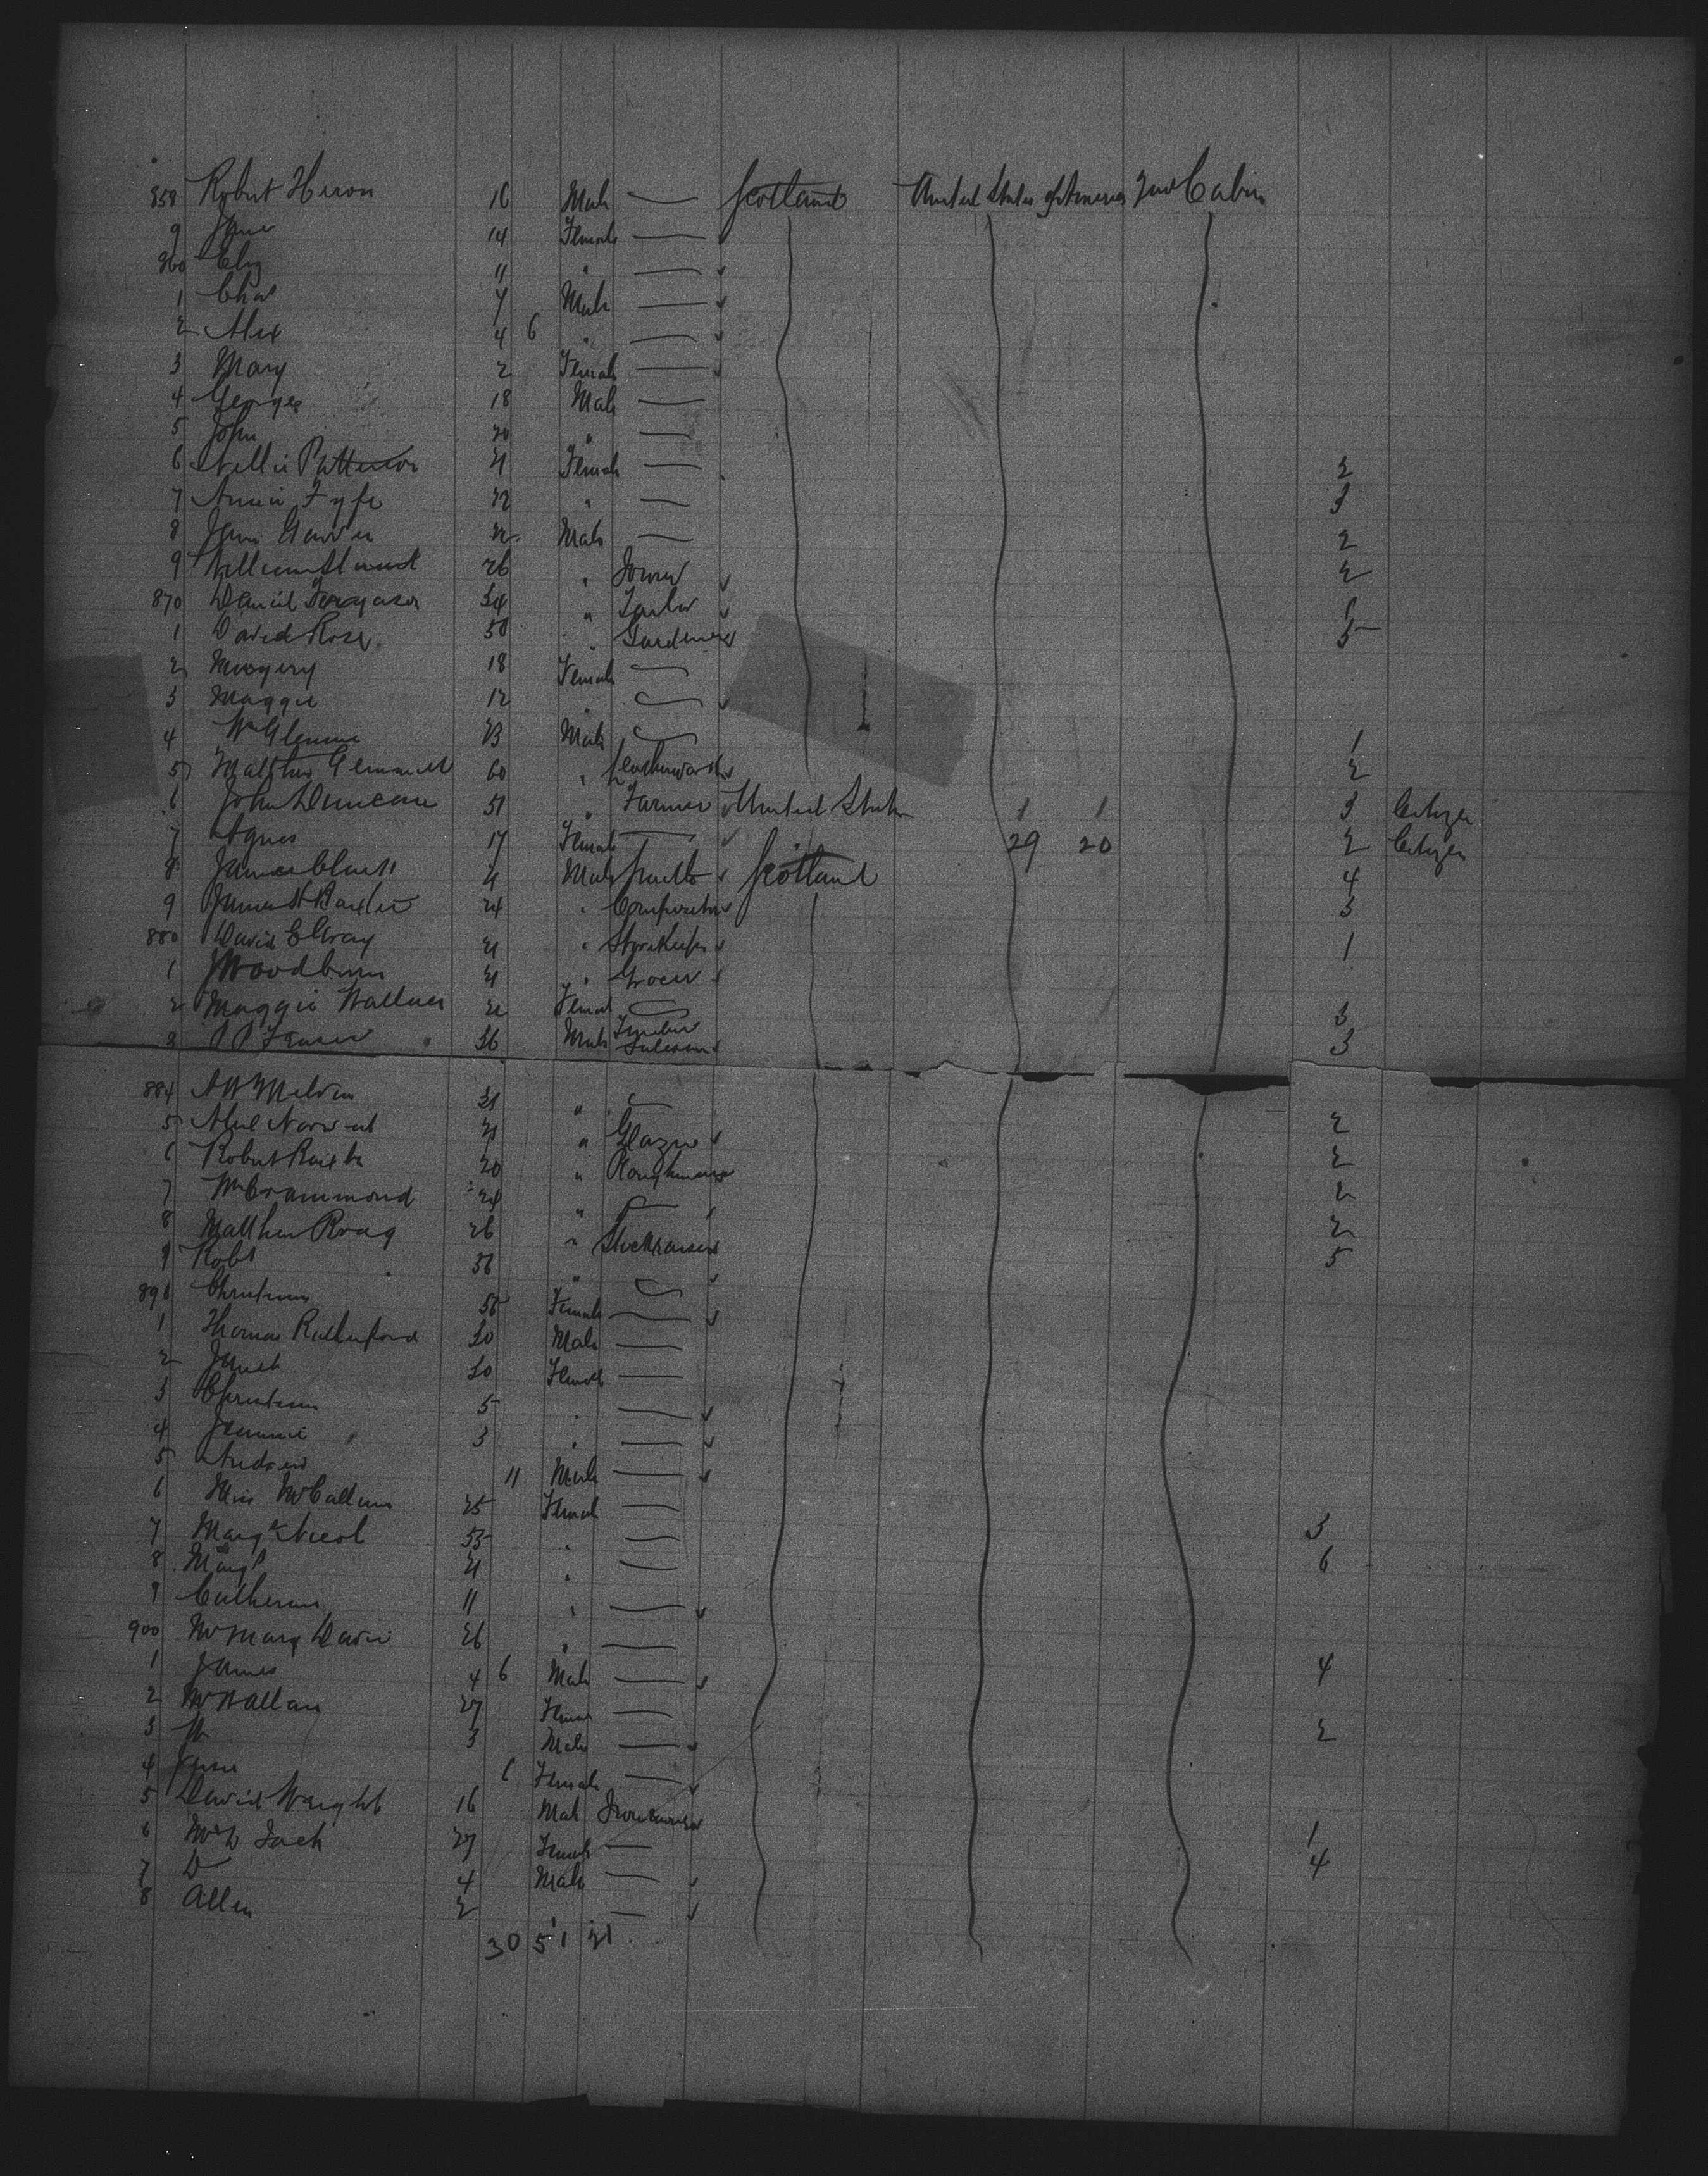 858 Robert Heron 16 Male — Scotland United States of America 2nd Cabin
9 Jane 14 Female —
860 Eliz 11 " —
1 Chas 7 Male —
2 Alex 4 6 " —
3 Mary 2 Female —
4 George 18 Male —
5 John 20 " —
6 Nellie Patterson 21 Female — 2
7 Annie Fyfe 22 " — 3
8 22 Male — 2
9 William 26 " Joiner 2
870 Daniel Ferguson 34 " Tailor 1
1 David Rose 50 " Gardener 5
2 Margery 18 Female —
3 Maggie 12 " —
4 Wm 23 Male — 1
5 Matthew Gemmell 60 " 2
6 John Duncan 51 " Farmer United States 1 1 3 Citizen
7 Agnes 17 Female — 29 20 2 Citizen
8 James Clark 21 Male Smith Scotland 4
9 James 24 " Compositor 3
880 David E Gray 21 " Storekeeper 1
1 J Woodburn 21 " Grocer
2 Maggie Wallace 22 Female — 3
3 Fraser 36 Male Timber Salesman 3
884 A W Melvin 21 " —
5 21 " Glazier 2
6 Robert 20 " Ploughman 2
7 Wm Crammond 24 " — 2
8 Matthew 26 " 2
9 Robt 56 " — 5
890 Christina 55 Female —
1 Thomas Rutherford 30 Male —
2 Janet 30 Female —
3 Christina 5 " —
4 Jeannie 3 " —
5 Andrew 11 Male —
6 Miss McCallum 25 Female —
7 Margt Nicol 55 " — 3
8 Margt 21 " — 6
9 Catherine 11 " —
900 Mrs Mary Davie 26 " —
1 James 4 6 Male — 4
2 Mrs Allan 27 Female —
3 W 3 Male — 2
4 6 Female —
5 David Wright 16 Male Ironmonger
6 Mrs D Jack 27 Female — 1
7 D 4 Male — 4
8 Allen 2 " —
30 51 21